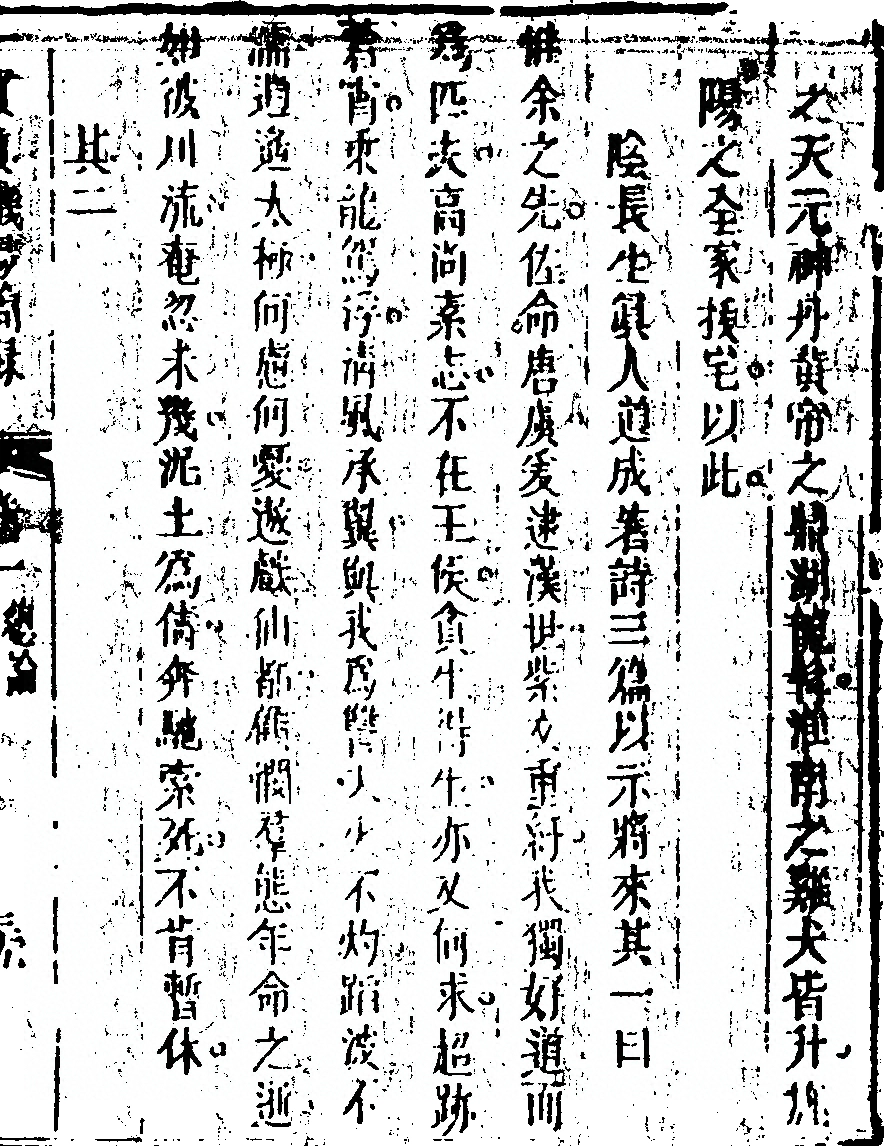 之天元神丹黃帝之鼎湖龍髯淮南之雞犬皆升
陽之全家損宅以此
陰長生眞人道成著詩三篇以示將來其一曰
惟余之先佐命唐虞爰逮漢世紫文重紆我獨好道而
爲匹夫高尚素志不在王侯貪生得生亦又何求超跡
蒼霄乘龍駕浮淸風承翼與我爲讐入火不灼蹈波不
濡逍遙太極何慮何憂遨戲仙都顧憫羣態年命之逝
如彼川流奄忽未幾泥土爲儔奔馳索死不肯暫休
其二
卷一
總論